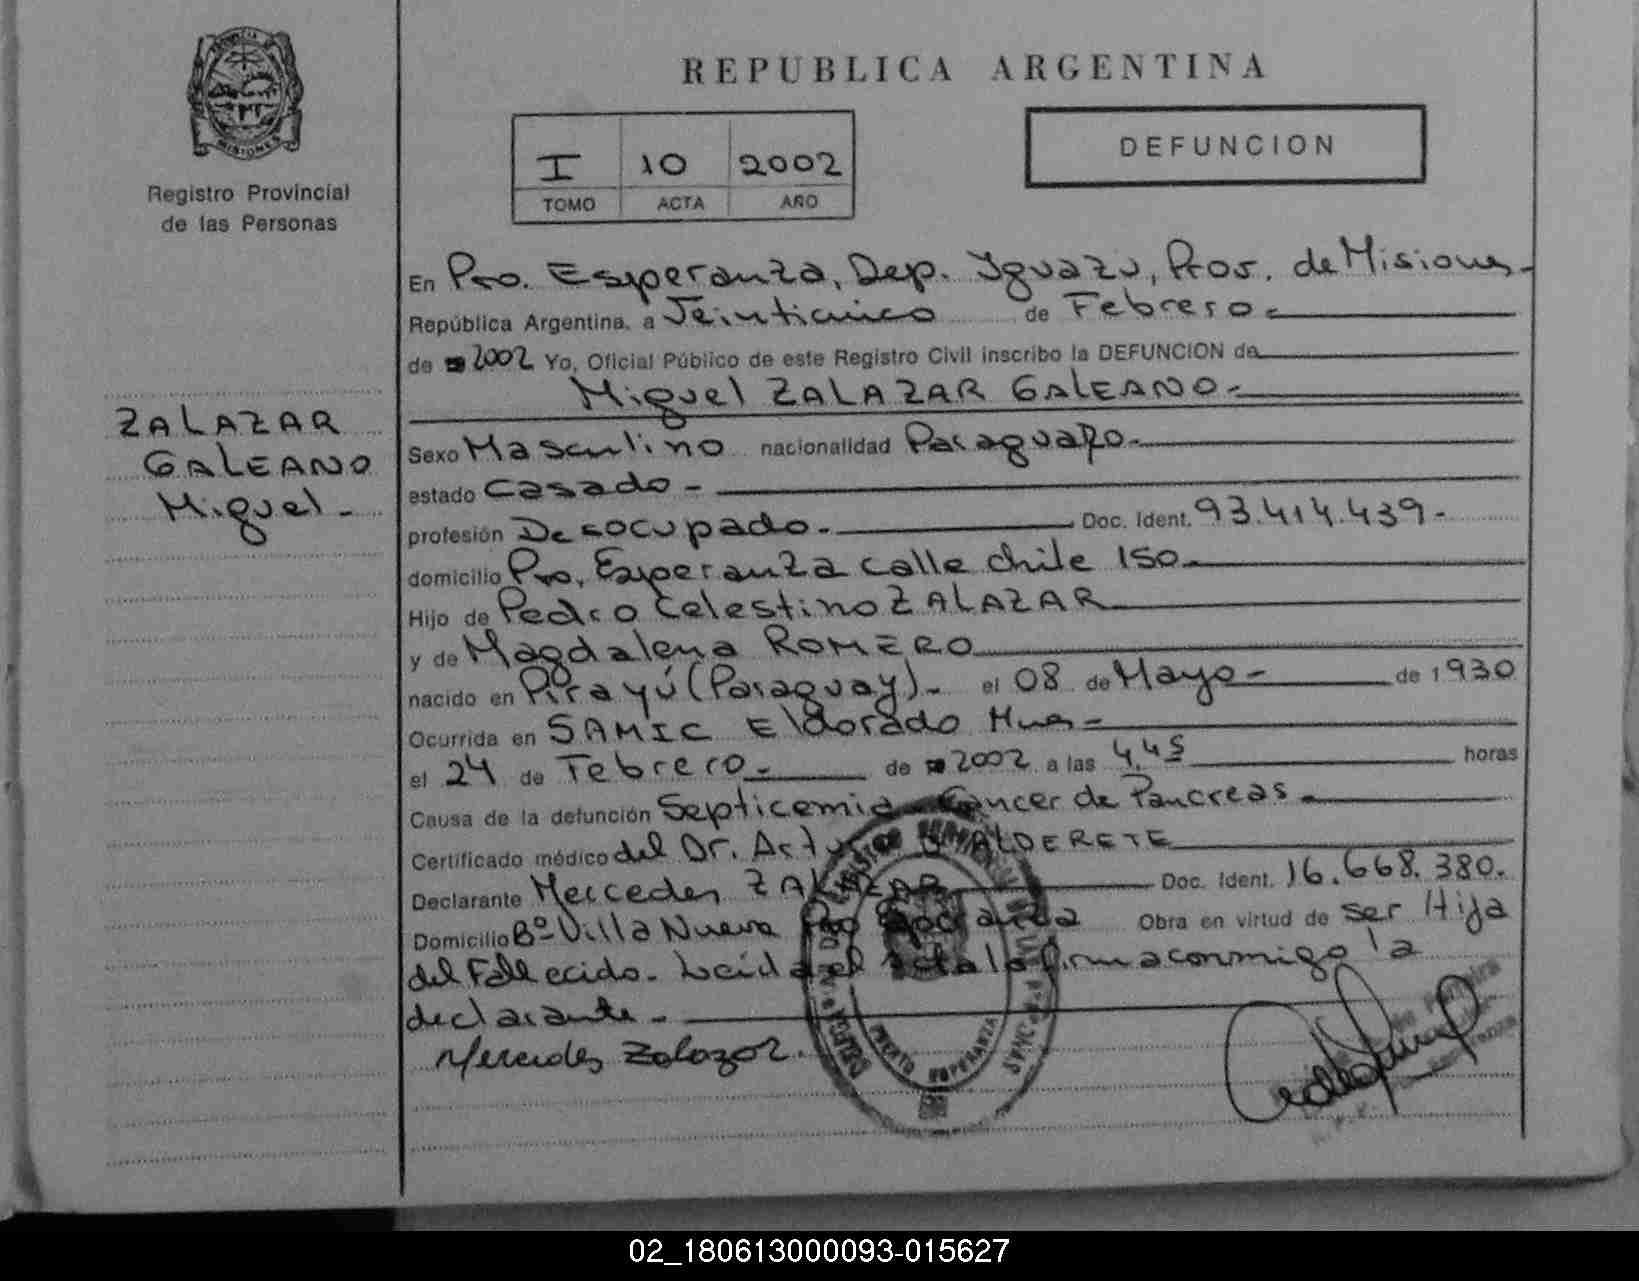 PROVINCIA DE
MISIONES
Registro Provincial
de las Personas
ZALAZAR
GALEANO
Miguel-
REPUBLICA ARGENTINA
I 10 2002
TOMO ACTA AÑO
DEFUNCION
En Pto. Esperanza, Dep. Iguazu, Prov. de Misiones-
República Argentina, a Veinticinco de Febrero-
de 2002 Yo, Oficial Público de este Registro Civil inscribo la DEFUNCION de
Miguel ZALAZAR GALEANO-
Sexo Masculino nacionalidad Paraguayo-
estado Casado-
profesión Desocupado- Doc. Ident. 93.414.439-
domicilio Pto. Esperanza calle chile 150-
Hijo de Pedro Celestino ZALAZAR
y de Magdalena ROMERO
nacido en Pirayú (Paraguay)- el 08 de Mayo- de 1930
Ocurrida en SAMIC Eldorado Mnes-
el 24 de Febrero- de 2002 a las 4,45 horas
Causa de la defunción Septicemia Cancer de Pancreas-
Certificado médico del Dr. Arturo ALDERETE
Declarante Mercedes ZALAZAR Doc. Ident. 16.668.380.
Domicilio Bº Villa Nueva Pto Esperanza Obra en virtud de ser Hija
del Fallecido- Leida el acta la firma conmigo la
declarante-
Mercedes Zalazar.
PUERTO ESPERANZA
02_180613000093-015627